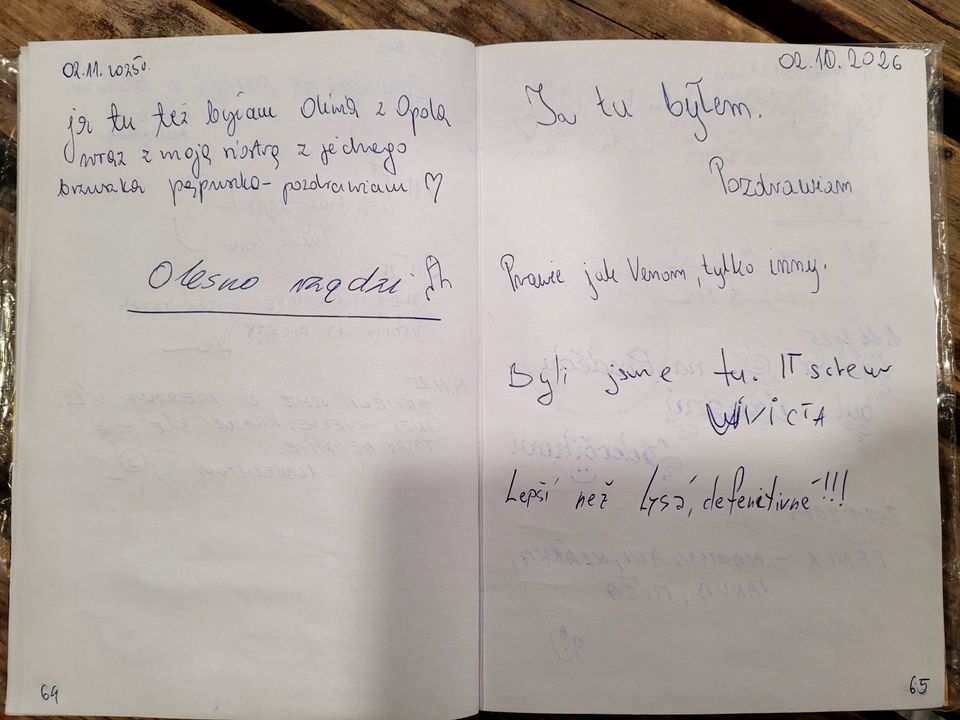 02.11.2025r.
ja tu też byłam Oliwia z Opola
wraz z moją siostrą z jednego
brzuszka pępuszka - pozdrawiam ♡
Olesno rządzi
64
02.10.2026
Ja tu byłem.
Pozdrawiam
Prawie jak Venom, tylko inny.
Byli jsme tu. IT screw
Lepší než Lysá, defenitivně!!!
65